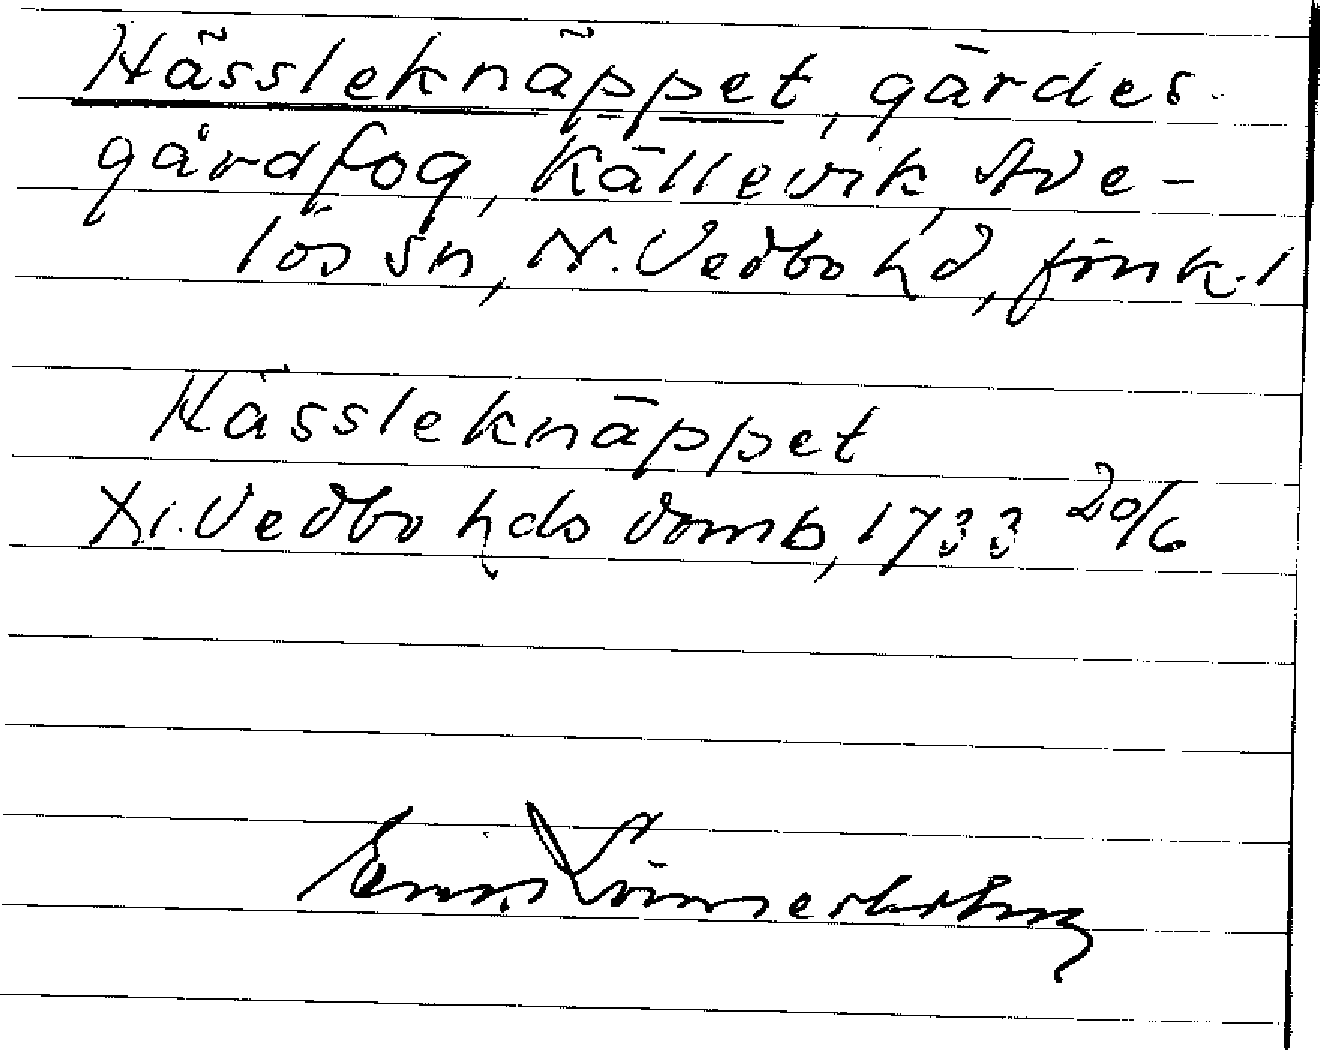 Hässleknäppet, gärdes-
gårdfog, Källevik, Ave-
lös sn, N. Vedbo hd, Jönk. l
Hässleknäppet
N. Vedbo hds domb, 1733 20/6